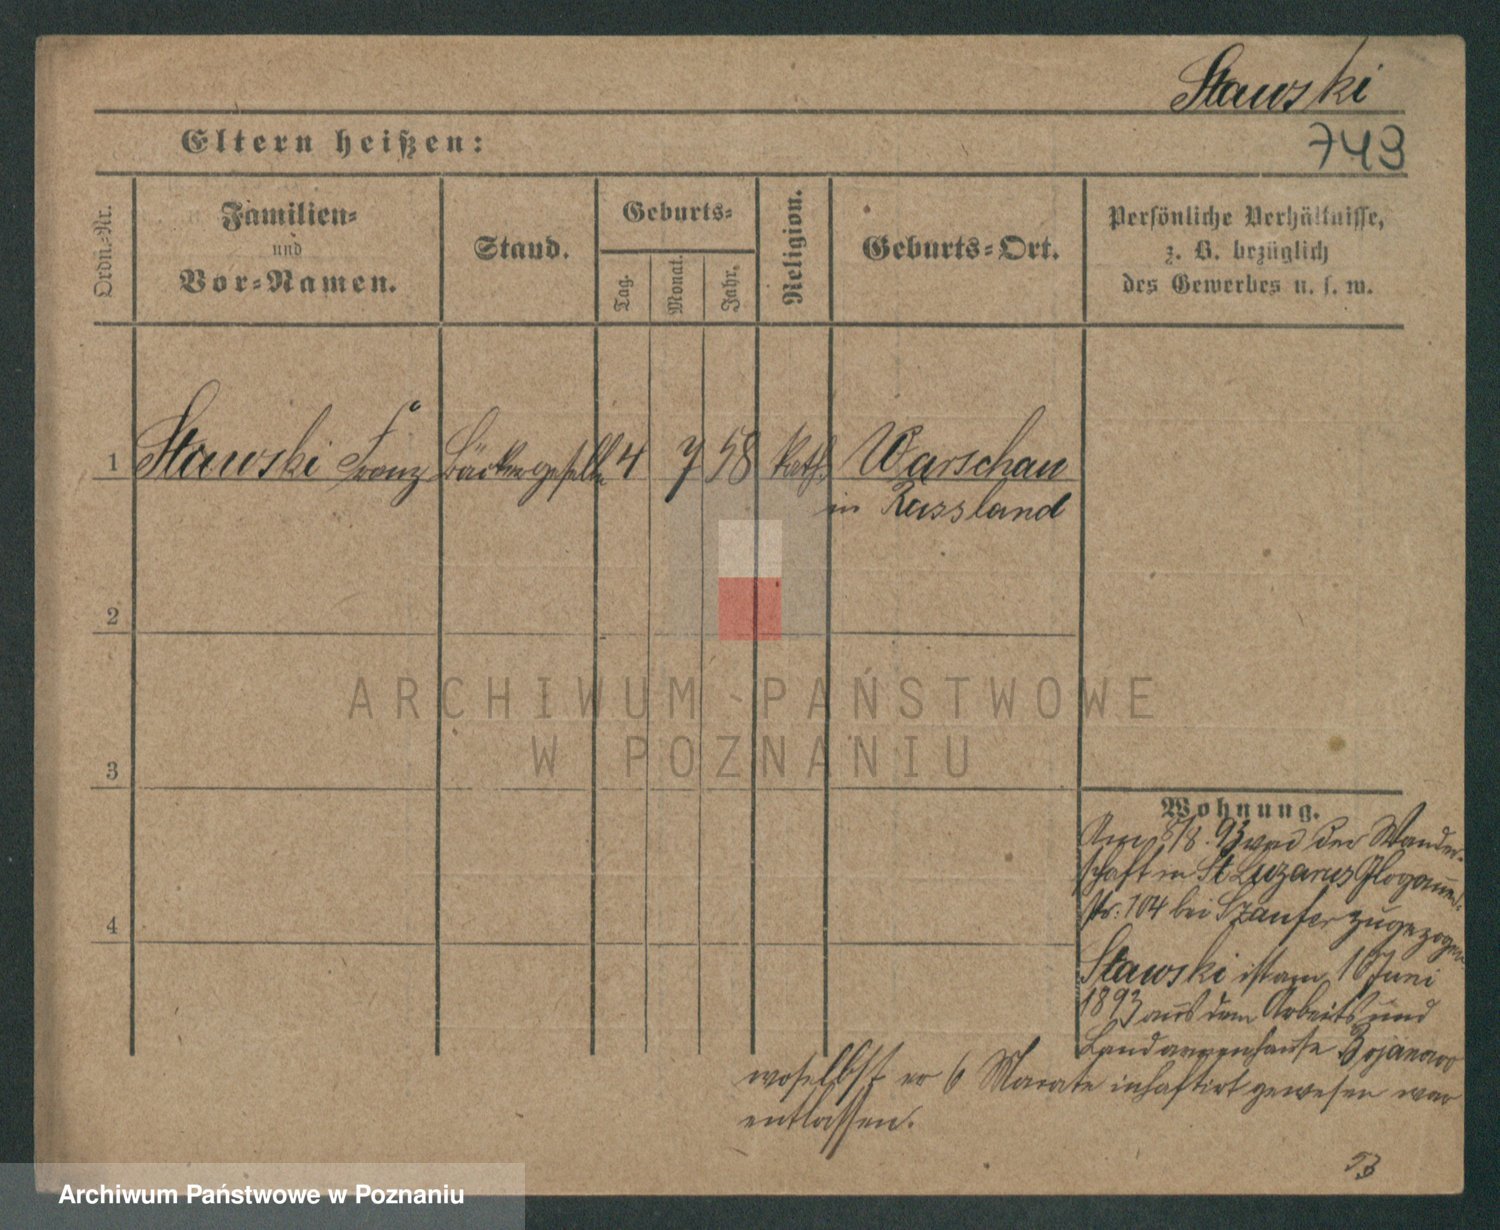 Stawski
743
Eltern heißen:
Ordn.-Nr.
Familien-
und
Vor-Namen.
Stand.
Geburts-
Tag.
Monat.
Jahr.
Religion.
Geburts-Ort.
Persönliche Verhältnisse,
z. B. bezüglich
des Gewerbes u. s. w.
1 Stawski Franz Bäckergeselle 4 7 58 kath. Warschau
in Russland
2
3
4
ARCHIWUM PAŃSTWOWE
W POZNANIU
Wohnung.
Am 5/8. 93 von der Wander-
schaft in St Lazarus Glogauer-
str: 104 bei zugezogen
Stawski ist am 16 Juni
1893 aus dem Arbeits und
Landarmenhause Bojanowo
woselbst er 6 Monate inhaftirt gewesen war
entlassen.
Archiwum Państwowe w Poznaniu